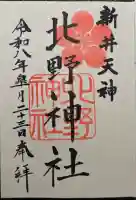 新井天神
北野神社
北野神社
令和八年一月二十三日奉拝